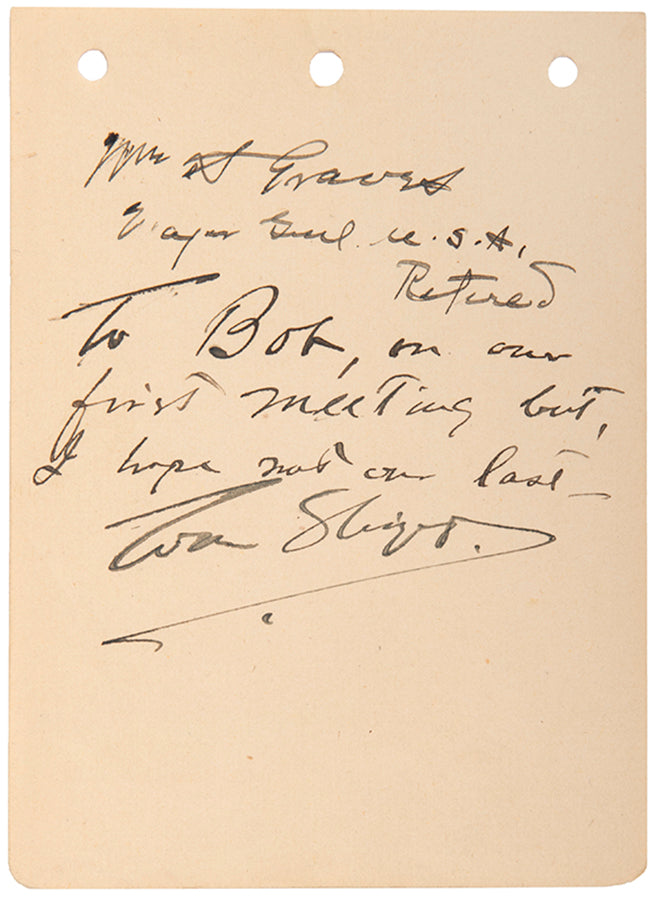 Wm S Graves
Major Genl. U.S.A,
Retired
To Bob, on our
first meeting but,
I hope not our last —